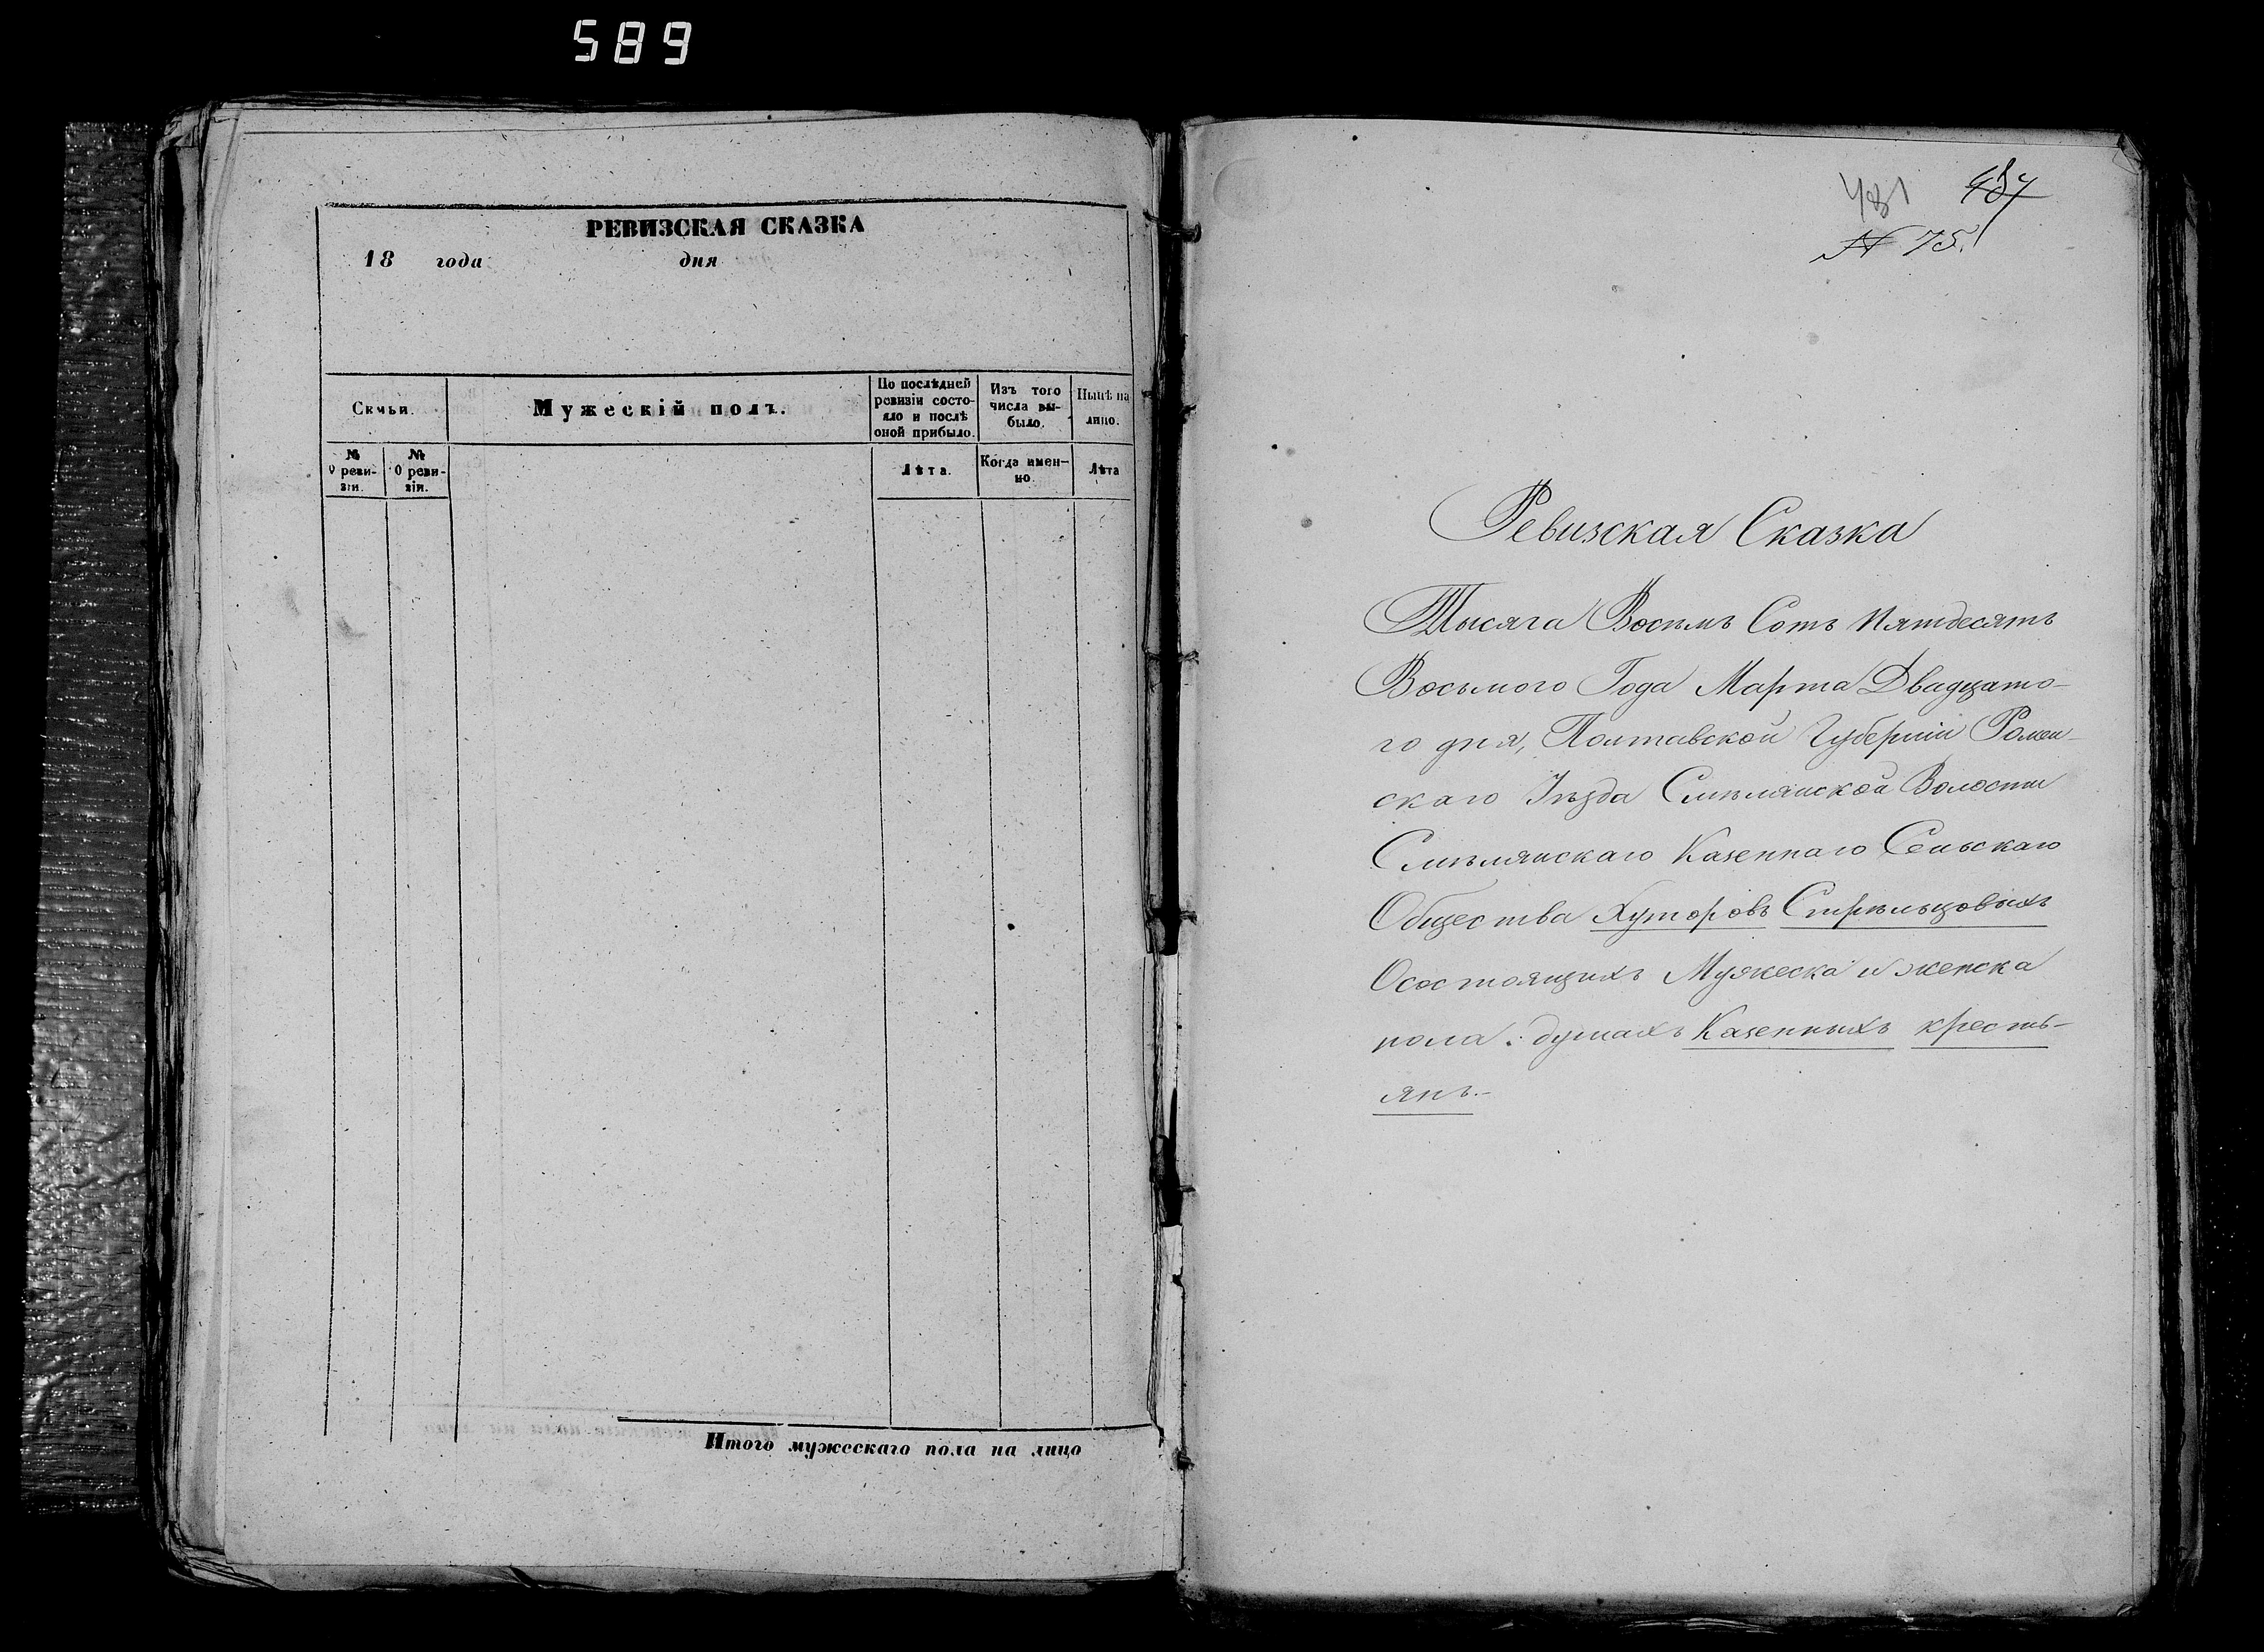 589
РЕВИЗСКАЯ СКАЗКА
18 года дня
Семьи.
Мужескій полъ.
По послѣдней ревизіи состо-яло и послѣ оной прибыло.
Изъ того числа вы-было.
Нынѣ на лицо.
№ 0 реви-зіи.
№ 0 реви-зіи.
Лѣта.
Когда имен-но.
Лѣта
Итого мужескаго пола на лицо
481 487
№ 75.
Ревизская Сказка
Тысяча Восемъ Сотъ Пятдесятъ
Восьмого Года Марта Двадцато-
го дня, Полтавской Губерніи Ромен-
скаго Уѣзда Смѣлянской Волости
Смѣлянскаго Казеннаго Сельскаго
Общества Хуторовъ Стрѣльцовыхъ
Осостоящихъ Мужеска и женска
пола: душахъ Казенныхъ кресть-
янъ.-